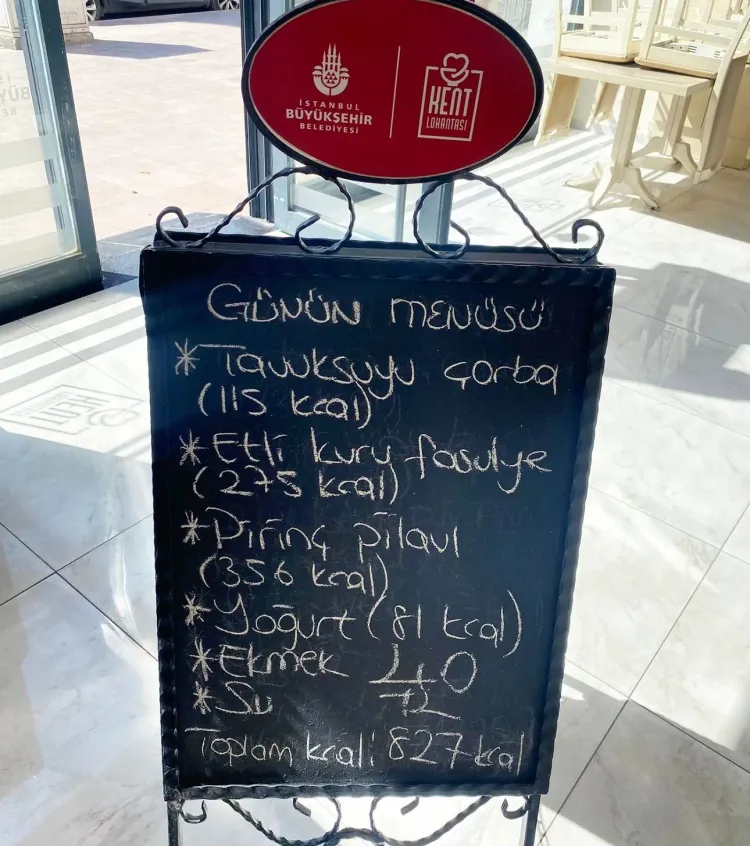 İSTANBUL
BÜYÜKŞEHİR
BELEDİYESİ
KENT
LOKANTASI
GÜNÜN MENÜSÜ
* Tavuksuyu çorba
(115 kcal)
* Etli kuru fasulye
(275 kcal)
* Pirinç pilavı
(356 kcal)
* Yoğurt (81 kcal)
* Ekmek 40
* Su TL
Toplam kcali 827 kcal